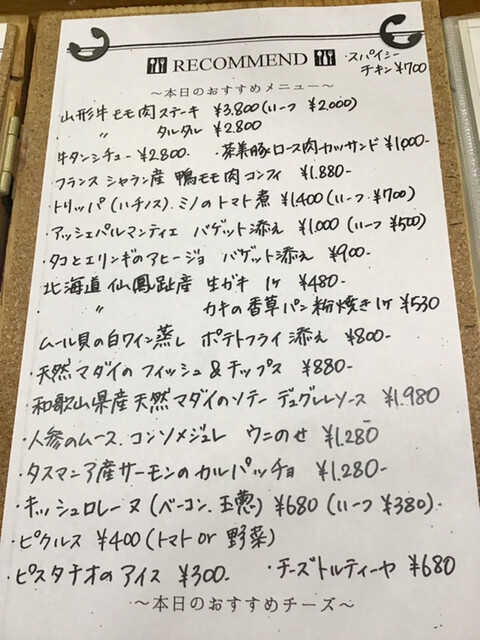 RECOMMEND
スパイシー
チキン ¥700
～本日のおすすめメニュー～
山形牛モモ肉ステーキ ¥3,800(ハーフ ¥2000)
〃 タルタル ¥2800
牛タンシチュー ¥2800- ・茶美豚ロース肉カツサンド ¥1000-
フランス シャラン産 鴨モモ肉コンフィ ¥1.880-
トリッパ(ハチノス).ミノのトマト煮 ¥1,400(ハーフ.¥700)
・アッシェパルマンティエ バゲット添え ¥1,000(ハーフ ¥500)
・タコとエリンギのアヒージョ バゲット添え ¥900-
北海道 仙鳳趾産 生ガキ 1ケ ¥480-
〃 カキの香草パン粉焼き 1ケ ¥530
ムール貝の白ワイン蒸し ポテトフライ添え ¥800-
・天然マダイのフィッシュ&チップス ¥880-
・和歌山県産天然マダイのソテー デュグレレソース ¥1,980
・人参のムース.コンソメジュレ ウニのせ ¥1,280
・タスマニア産サーモンのカルパッチョ ¥1,280-
・キッシュロレーヌ(ベーコン、玉葱) ¥680(ハーフ ¥380)-
・ピクルス ¥400(トマト or 野菜)
・ピスタチオのアイス ¥300- ・チーズトルティーヤ ¥680
～本日のおすすめチーズ～